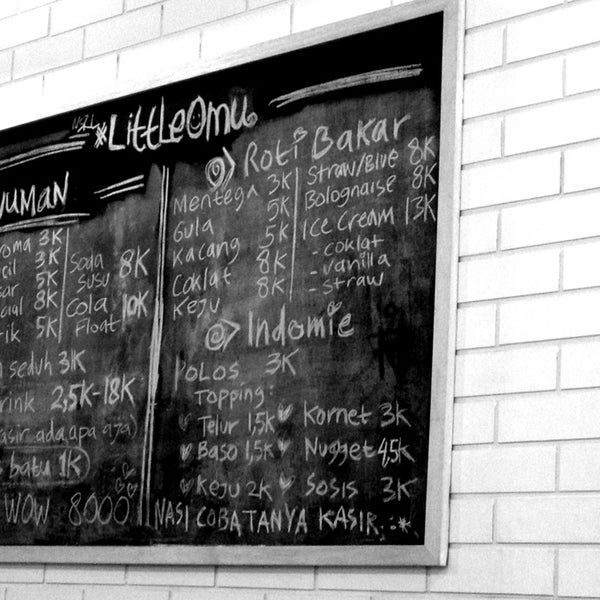 *LittleOmu
YUMAN
oma 3K
cil 3K
sar 5K
8K
rik 5K
Soda Susu 8K
Cola Float 10K
seduh 3K
rink 2,5K-18K
asir ada apa aja)
batu 1K)
WOW 8000
Roti Bakar
Mentega 3K
Gula 5K
Kacang 5K
Coklat 8K
Keju 8K
Straw/Blue 8K
Bolognaise 8K
Ice Cream 13K
- coklat
- vanilla
- straw
Indomie
Polos 3K
Topping:
Telur 1,5K Kornet 3K
Baso 1,5K Nugget 4,5K
Keju 2K Sosis 3K
NASI COBA TANYA KASIR :*